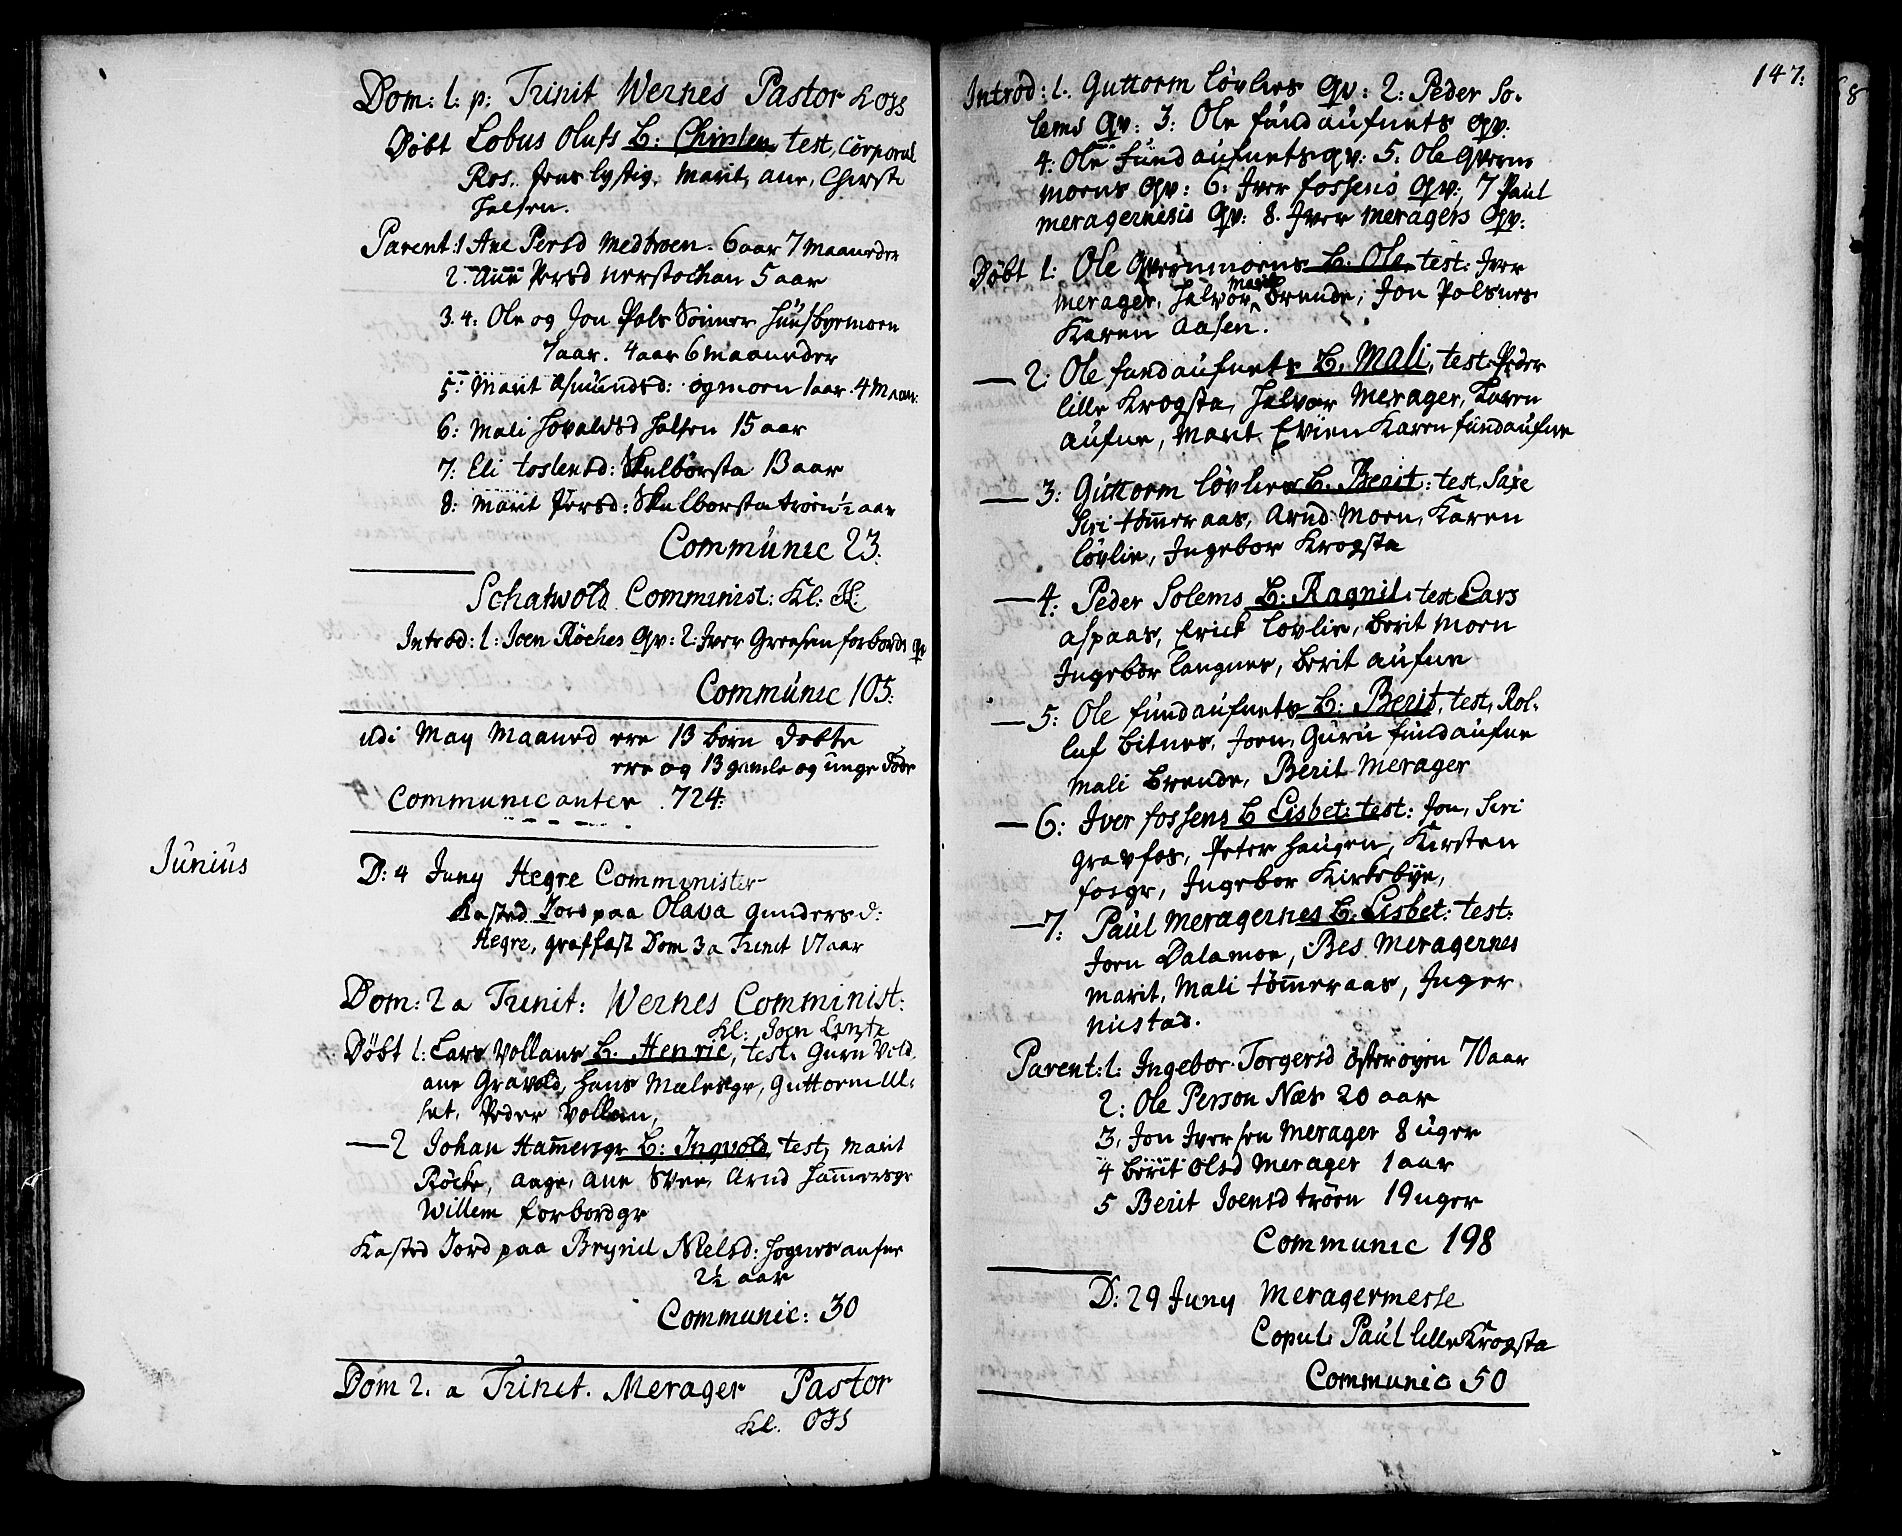 Dom: 1: p: Trinit Wernes Pastor
Døbt Lobus Olufs B: Christen test, Corporal
Ros. Jens lystig, Marit, ane, Chirsti
Halsen.
Parent: 1 Ane Persd Medtroen. 6 aar 7 Maaneder
2. Ane Persd Nerstochan 5 aar
3. 4: Ole og Jon Pals Sönner Huusbyemoen
7 aar. 4 aar 6 maaneder
5: Marit Asmundsd: ogmoen 1 aar. 4 Maan:
6: Mali Hovaldsd Halsen 15 aar
7: Eli toslensd: Skelborsta 13 aar
8: Marit Persd: Skelborsta troen ½ aar
Communic 23.
Schatwold Comminist: Kl:
Introd: 1: Joen Röckes Qv: 2: Iver Greesen forbords Qv
Communic 105:
udi May Maaned ere 13 børn døbte
ere og 13 gamle og unge döde
Communicanter 724:
Junius
D: 4 Juny Hegre Comminister
Kasted Jord paa Olava Gundersd:
Hegre, graffast Dom 3 a Trinit 17 aar
Dom: 2 a Trinit: Wernes Comminist:
Kl: Joen Lintz
Døbt 1: Lars Vollans B: Henric, test. Guru Vold,
ane Gravold, Hans Mælesgr, Guttorm Ul-
set, Peder Vollan,
2 Johan Hammersgr B: Ingvold, test, Marit
Röcke, aage, ane Svee, Arnd Hammersgr
Willem forbordgr
Kasted Jord paa Brynil Nielsd: Hognesaufne
2½ aar
Communic: 30
Dom 2. a Trinit. Merager Pastor
Kl.
147:
Introd: 1. Guttorm løvlies Qv: 2: Peder So-
lems Qv: 3: Ole fundaufnets Qv:
4: Ole fundaufnets Qv: 5: Ole Qverne
moens Qv: 6: Iver fossens Qv: 7 Paul
meragernesis Qv: 8. Iver Meragers Qv:
Døbt 1: Ole Qvernmoens B: Ole, test: Iver
Merager, Halvor Marit Brende, Jon Polsnes
Karen Aasen.
2: Ole fundaufnets B. Mali, test: Peder
lille Krogsta, Halvor Merager, Karen
aufne, Marit Evien Karen fundaufne
3: Guttorm løvlies B. Berit: test, Saxe
Siri tömmeraas, Arnd Moen, Karen
løvlie, Ingebor Krogsta
4: Peder Solems B: Ragnil: test Lars
aspaas, Erick Lovlie, Berit Moen
Ingebor Langnes, Berit aufne
5: Ole fundaufnets B: Berit, test, Rol-
luf Bitnes, Joen, Guru fundaufne
Mali Brende, Berit Merager
6: Iver fossens B Lisbet: test: Jon, Siri
Gravfos, Peter Haugen, Kirsten
fosgr, Ingebor Kirkebye,
7: Paul Meragernes B: Lisbet: test:
Joen Dalamoe, Bes Meragernes
Marit, Mali tömmeraas, Inger
nustad.
Parent: 1: Ingebor Torgersd Österöyen 70 aar
2: Ole Person Næs 20 aar
3, Jon Iversen Merager 8 uger
4 Berit Olsd Merager 1 aar
5 Berit Joensd tröen 19 uger
Communic 198
D: 29 Juny Meragermesse
Copul: Paul lille Krogsta
Communic 50